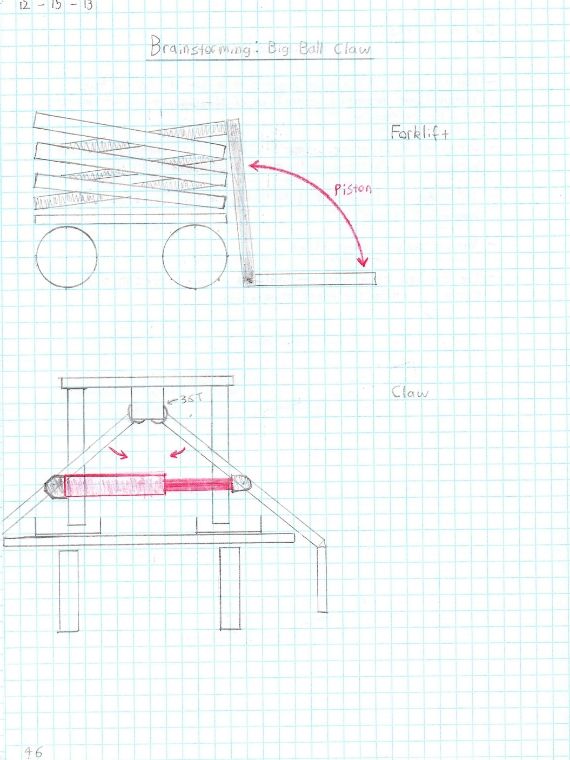 12 - 15 - 13
Brainstorming: Big Ball Claw
Forklift
Piston
35T
Claw
46